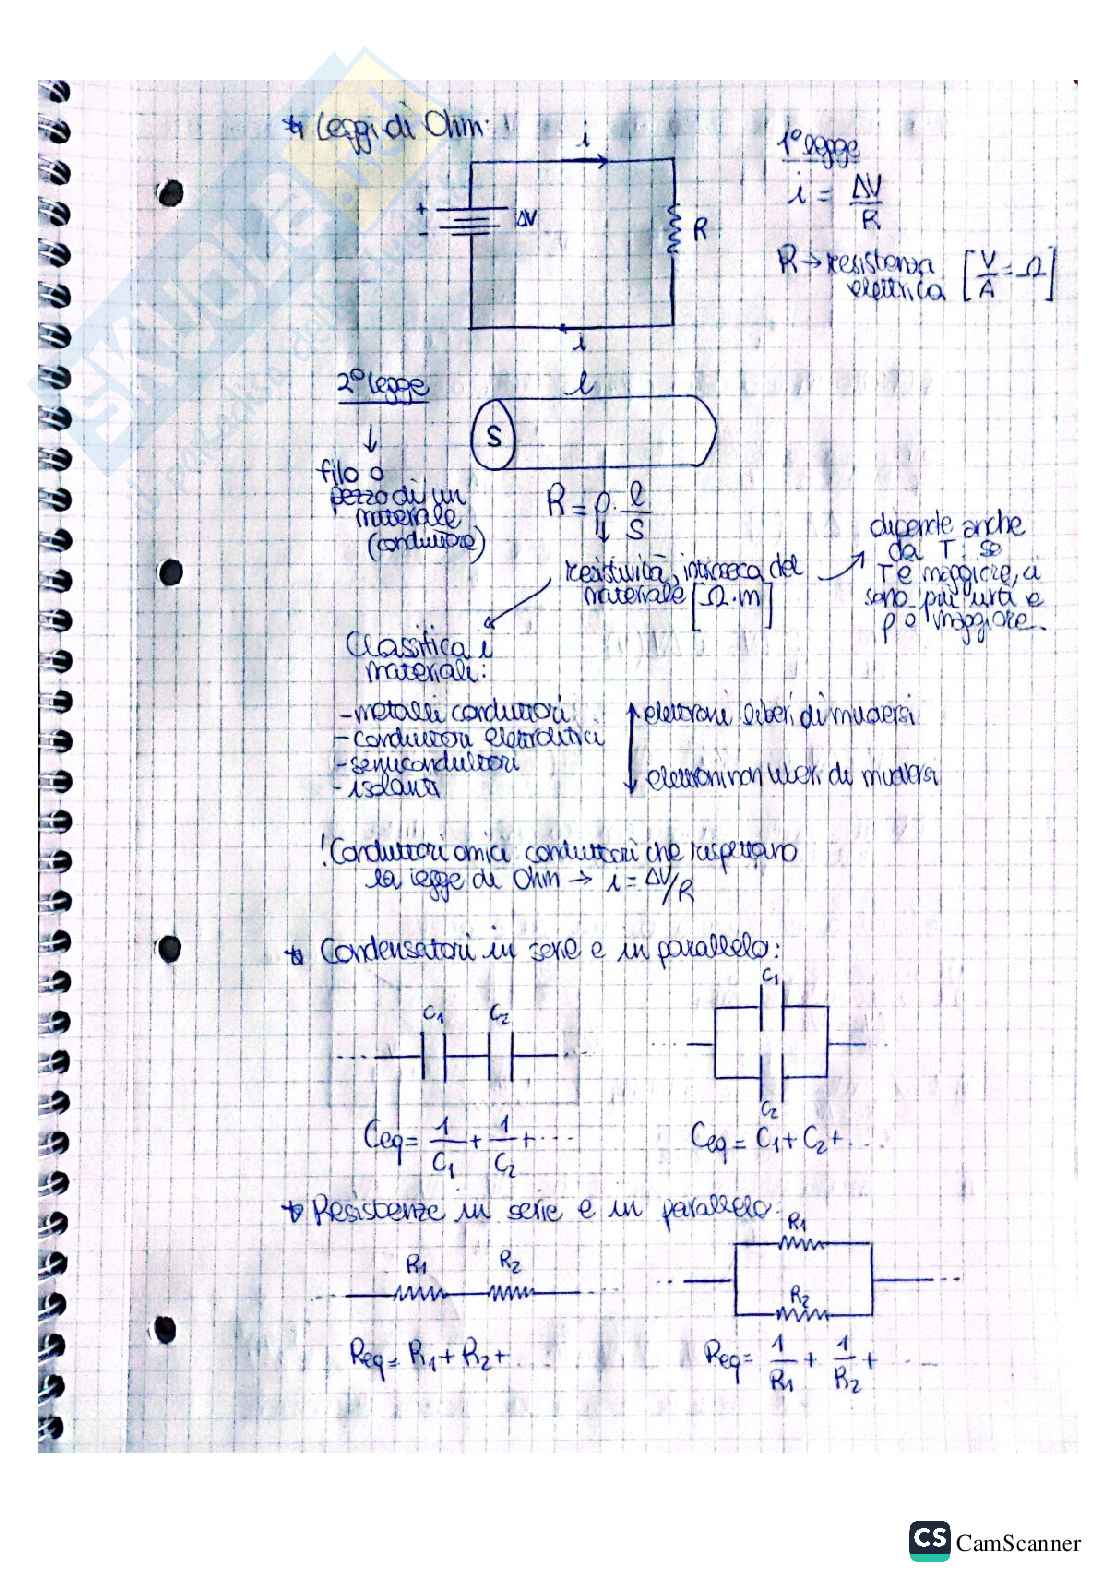 * Leggi di Ohm:
i
1° legge
i = ΔV/R
+
-
ΔV
R
R → resistenza elettrica [V/A = Ω]
i
2° legge
l
S
↓
filo o
pezzo di un
materiale
(conduttore)
R = ρ · l/S
resistività, intrinseca del
materiale [Ω·m]
dipende anche
da T: se
T è maggiore, ci
sono più urti e
ρ è maggiore.
Classifica i
materiali:
- metalli conduttori
- conduttori elettrolitici
- semiconduttori
- isolanti
elettroni liberi di muoversi
elettroni non liberi di muoversi
! Conduttori omici conduttori che rispettano
la legge di Ohm → i = ΔV/R
* Condensatori in serie e in parallelo:
C1 C2
C1
C2
Ceq = 1/C1 + 1/C2 + ...
Ceq = C1 + C2 + ...
* Resistenze in serie e in parallelo:
R1 R2
R1
R2
Req = R1 + R2 + ...
Req = 1/R1 + 1/R2 + ...
SKUOLA.NET
CS CamScanner